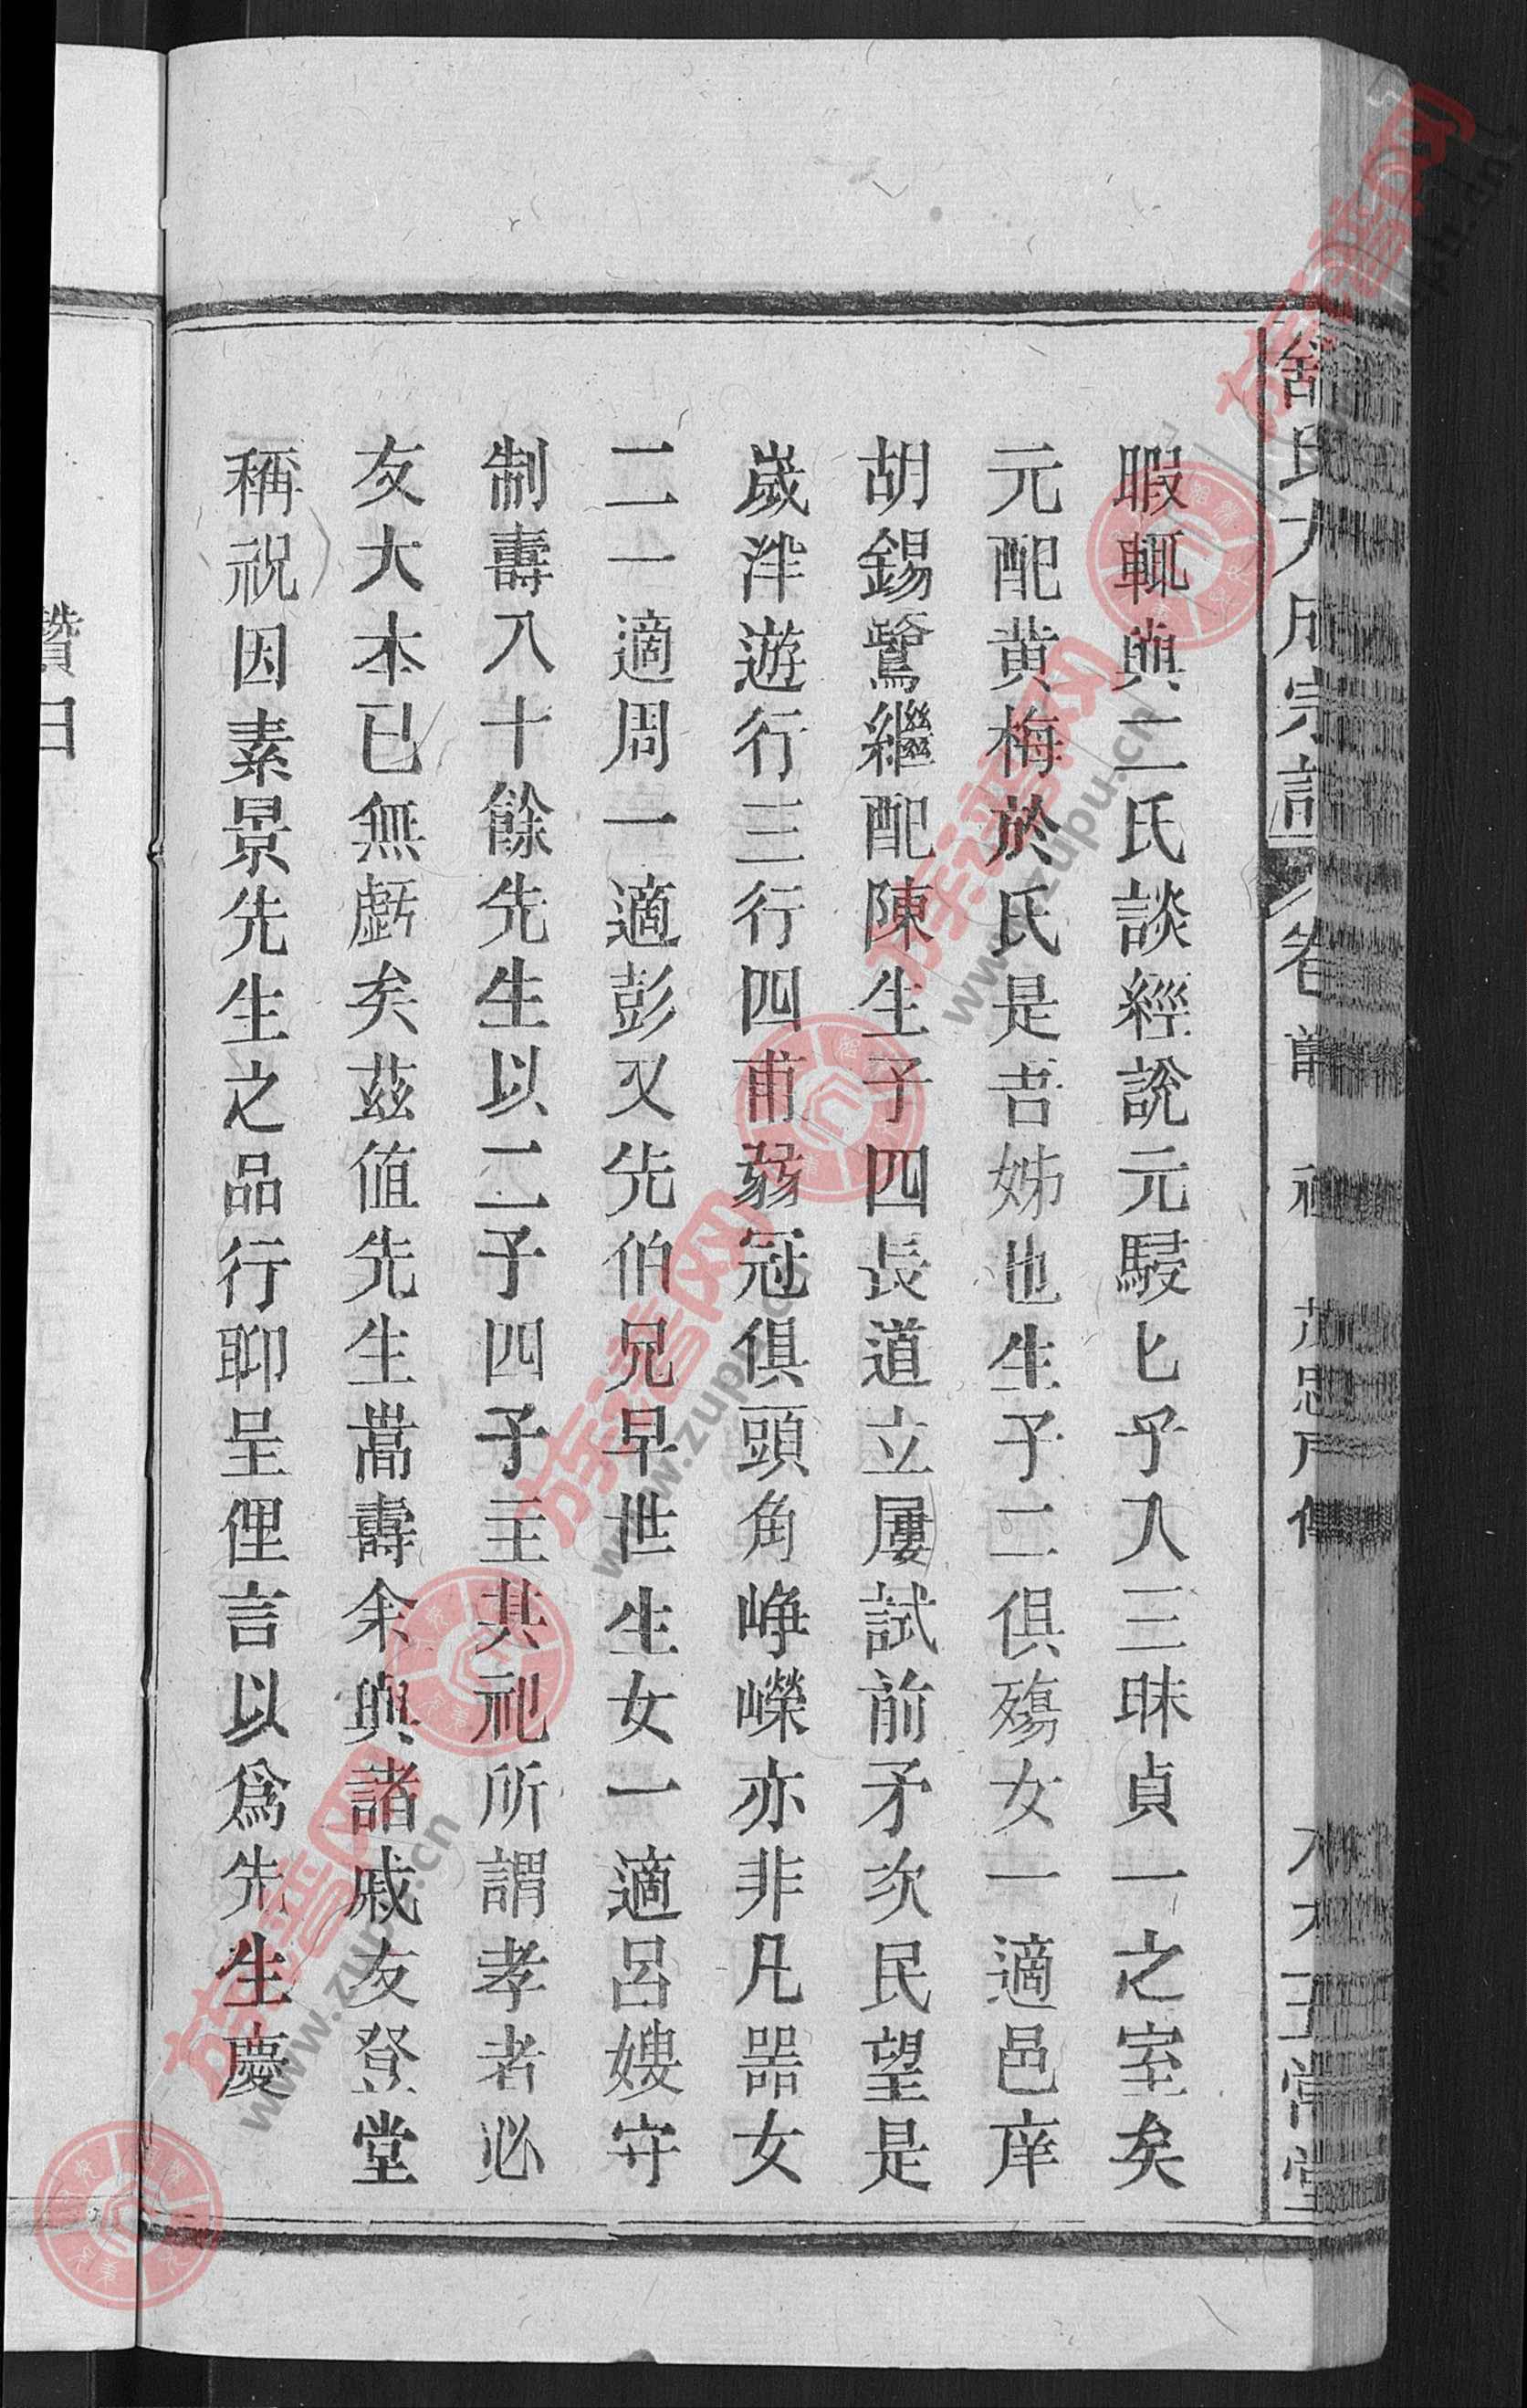 暇輒與二氏談經說元駸匕乎入三昧貞一之室矣
元配黄梅於氏是吉姊也生子二俱殤女一適邑庠
胡錫鷺繼配陳生子四長道立屢試前矛次民望是
嵗泮遊行三行四甫弱冠俱頭角崢嶸亦非凡器女
二一適周一適彭又先伯兄早世生女一適呂嫂守
制壽八十餘先生以二子四子主其祀所謂孝者必
友大本已無虧矣茲值先生當壽余與諸戚友登堂
稱祝因素景先生之品行聊呈俚言以爲先生慶
贊曰
族谱网
www.zupu.cn
族谱网
www.zupu.cn
族谱网
www.zupu.cn